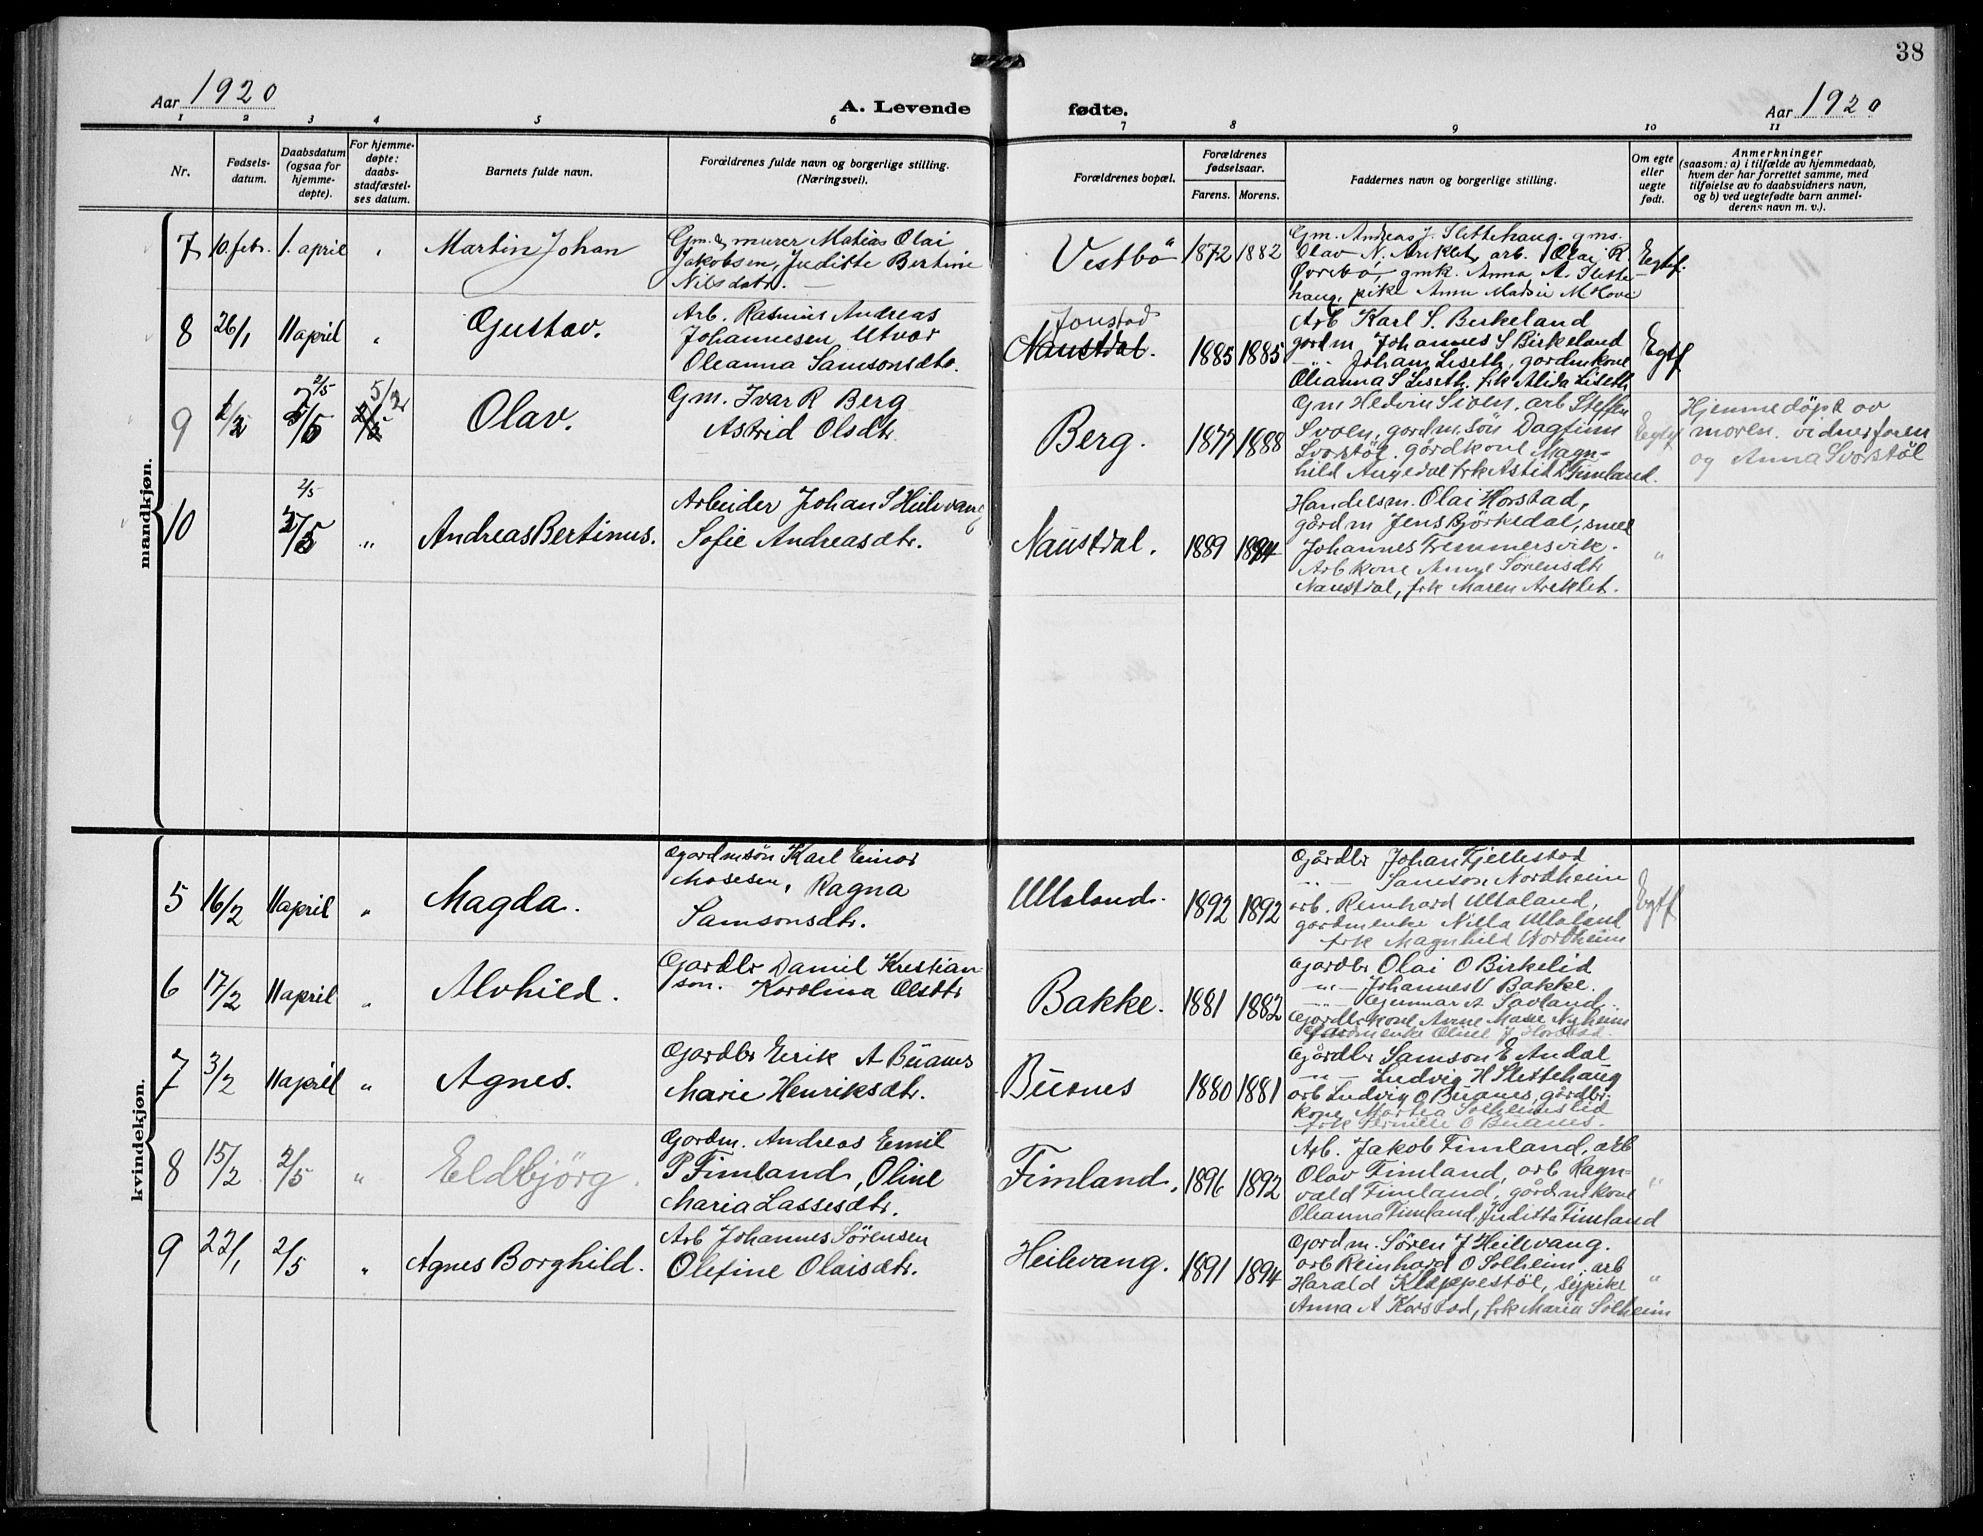 38
Aar 1920
A. Levende
fødte.
Aar 1920
1 2 3 4 5 6 7 8 9 10 11
Nr.
Fødsels-
datum.
Daabsdatum
(ogsaa for
hjemme-
døpte).
For hjemme-
døpte:
daabs-
stadfæstel-
ses datum.
Barnets fulde navn.
Forældrenes fulde navn og borgerlige stilling.
(Næringsvei).
Forældrenes bopæl.
Forældrenes
fødselsaar.
Farens. Morens.
Faddernes navn og borgerlige stilling.
Om egte
eller
uegte
født.
Anmerkninger
(saasom: a) i tilfælde av hjemmedaab,
hvem der har forrettet samme, med
tilføielse av to daabsvidners navn,
og b) ved uegtefødte barn anmel-
derens navn m. v.).
mandkjøn.
7 10 febr. 1. april " Martin Johan
Gm. & murer Matias Olai
Jakobsen, Juditte Bertine
Nilsdatr.
Vestbö 1872 1882
Gm. Andreas J. Slettehaug. gms.
Olav N. Areklet, arb. Olai R.
Övrebö, gmk. Anna A. Slette-
haug, pike Anna Matsie M Hove
Egtef.
8 26/1 11 april " Gustav.
Arb. Rasmus Andreas
Johannesen, Utvær
Oleanna Samsonsdtr.
Jonstad
Naustdal. 1885 1885
Arb Karl S. Birkeland
gardm Johannes S Birkeland
" Johan Liseth, gardmkone
Oleanna S Liseth, frk Alida Liseth
Egtf
9 2/2 2/5 5/2 Olav.
Gm. Ivar R Berg
Astrid Olsdtr.
Berg. 1877 1888
Gm Hedvin Svoen, arb Steffen
Svoen, gardm. sön Dagfinn
Svorstöl. gårdkone Magn-
hild Angedal frk Astid Fimland.
Egtf
Hjemmedøpt av
moren. vidner faren
og Anna Svorstöl
10 2/5 " Andreas Bertinus.
Arbeider Johan S Heilevang
Sofie Andreasdtr.
Naustdal. 1889
Handelsm. Olai Horstad,
gårdm Jens Björkedal, smed
Johannes Fremmersvik.
Arb kone Anne Sörensdtr
Naustdal, frk Maren Areklet.
"
kvindekjøn.
5 16/2 11 april " Magda.
Gardmsön Karl Einar
Mosesen, Ragna
Samsonsdtr.
Ullaland. 1892 1892
Gårdbr Johan Fjellestad
" — Samson Nordheim
arb. Reinhard Ullaland,
gardmenke Nilla Ullaland
frk Magnhild Nordheim
Egtf
6 17/2 11 april " Alvhild.
Gardbr Daniel Kristian-
son. Karolina Olsdtr
Bakke. 1881 1882
Gardbr Olai O Birkelid
" — Johannes V Bakke.
" — Gunnar A Savland.
Gårdbr kone Anne Marie Nyheim
7 3/2 11 april " Agnes.
Gardbr Eirik A Buanes
Marie Henriksdtr.
Buanes 1880 1881
Gårdbr Samson E Andal
" — Ludvig H Slettehaug
arb Ludvig O Buanes, gårdbr.
kone Martea Solheimslid
frk Pernille O Buanes.
8 15/2 2/5 " Eldbjörg.
Gardm. Andreas Emil
P Fimland, Oline
Maria Lassesdtr.
Fimland, 1896 1892
Arb. Jakob Fimland, arb
Olav Fimland, arb Ragn-
vald Fimland, gårdmkone
Oleanna Fimland, Juditta Fimland
"
9 22/1 2/5 " Agnes Borghild.
Arb Johannes Sörensen
Olefine Olaisdtr.
Heilevang. 1891 1894
Gardm. Sören J Heilevang.
arb Reinhard O Solheim. arb
Harald Kleppestöl, sypike
Anna A Korstad, frk Maria Solheim
"